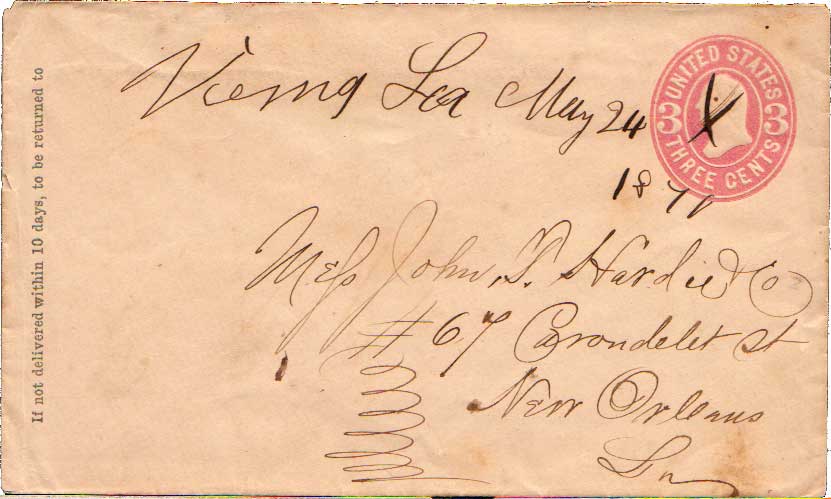 If not delivered within 10 days, to be returned to
Vienna La May 24
187
UNITED STATES
3 3
THREE CENTS
Mess John T. Hardie & Co
# 67 Carondelet St
New Orleans
La